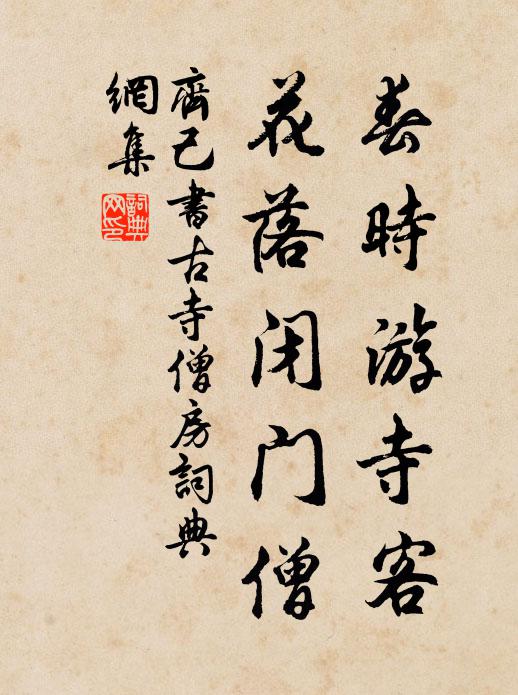 春時游寺客
花落闭门僧
齊己書古寺僧房詞典
網集
詞典
网印